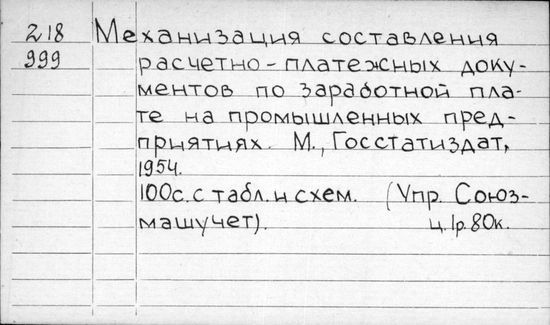 218 Механизация составления
999 расчетно-платежных доку-
ментов по заработной пла-
те на промышленных пред-
приятиях. М., Госстатиздат,
1954.
100с. с табл. и схем. (Упр. Союз-
машучет). ц. 1р. 80к.